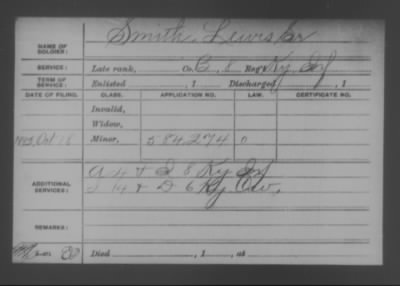 NAME OF SOLDIER: Smith, Lewis
SERVICE: Late rank, Co. C, 8 Reg't Ky Inf
TERM OF SERVICE: Enlisted , 1 Discharged , 1
DATE OF FILING. CLASS. APPLICATION NO. LAW. CERTIFICATE NO.
Invalid,
Widow,
Oct 18 Minor, 584,274
ADDITIONAL SERVICES: A 4 & I 8 Ky Inf
I 14 & D 6 Ky Cav.
REMARKS:
Died , 1 , at